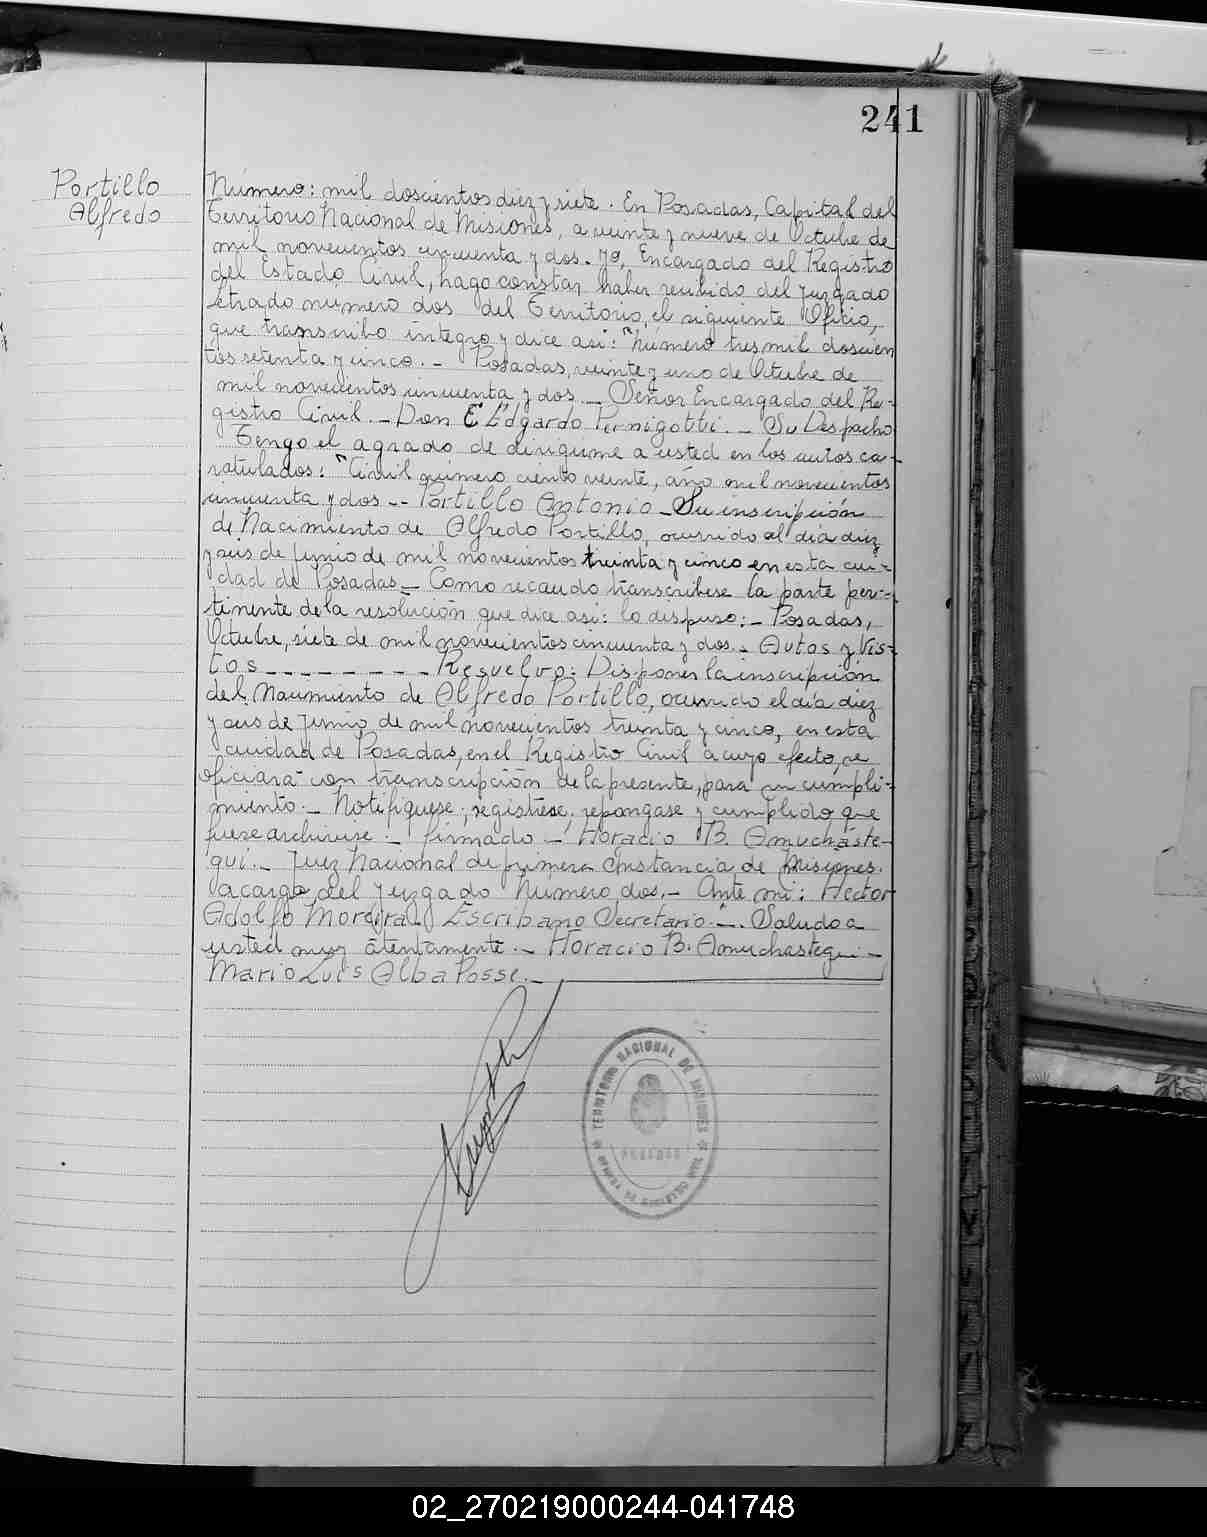 241
Portillo
Alfredo
Número: mil doscientos diez y siete. En Posadas, Capital del
Territorio Nacional de Misiones, a veinte y nueve de Octubre de
mil novecientos cincuenta y dos. Yo, Encargado del Registro
del Estado Civil, hago constar haber recibido del Juzgado
Letrado numero dos del Territorio, el siguiente Oficio,
que transcribo integro y dice asi: "Número tres mil doscien
tos setenta y cinco. - Posadas, veinte y uno de Octubre de
mil novecientos cincuenta y dos - Señor Encargado del Re-
gistro Civil. - Don Edgardo Pernigotti. - Su Despacho
Tengo el agrado de dirigirme a usted en los autos ca-
ratulados: "Civil número ciento veinte, año mil novecientos
cincuenta y dos -- Portillo Antonio - Su inscripción
de Nacimiento de Alfredo Portillo, ocurrido el día diez
y seis de Junio de mil novecientos treinta y cinco en esta ciu-
dad de Posadas - Como recaudo transcribese la parte per-
tinente de la resolución que dice asi: lo dispuso: - Posadas,
Octubre, siete de mil novecientos cincuenta y dos. Autos y Vis-
tos - - - - - - - - - Resuelvo: Disponer la inscripción
del Nacimiento de Alfredo Portillo, ocurrido el día diez
y seis de Junio de mil novecientos treinta y cinco, en esta
ciudad de Posadas, en el Registro Civil a cuyo efecto, se
oficiará con transcripción de la presente, para su cumpli-
miento. - Notifiquese, registrese, repongase y cumplido que
fuese archivese. - firmado - Horacio B. Amucháste-
gui. - Juez Nacional de primera Instancia de Misiones.
a cargo del Juzgado Numero dos. - Ante mi: Hector
Adolfo Moreira - Escribano Secretario. - . Saludo a
usted muy atentamente. - Horacio B. Amuchastegui -
Mario Luis Alba Posse. -
TERRITORIO NACIONAL DE MISIONES
POSADAS
02_270219000244-041748